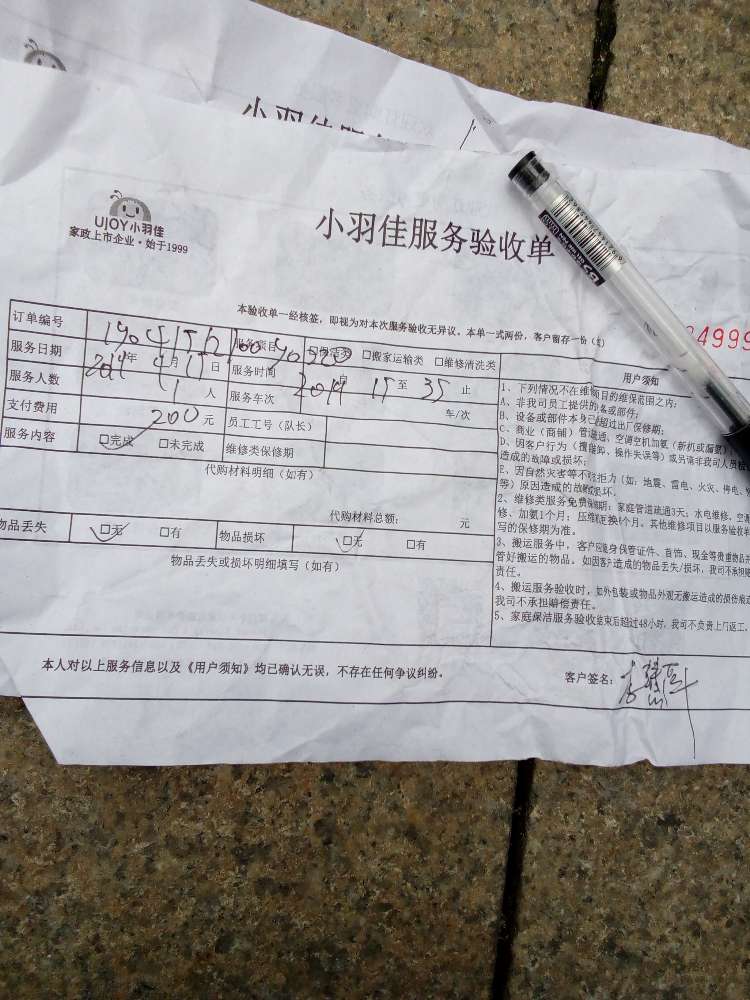 小羽佳
UJOY小羽佳
家政上市企业·始于1999
小羽佳服务验收单
本验收单一经核签，即视为对本次服务验收无异议。本单一式两份，客户留存一份
4999
订单编号
服务项目 □搬家运输类 □维修清洗类
服务日期 2019年4月15日 服务时间 自 15 至 35 止
服务人数 1人 服务车次 车/次
支付费用 200元 员工工号（队长）
服务内容 □完成 □未完成 维修类保修期
代购材料明细（如有）
代购材料总额： 元
物品丢失 □无 □有 物品损坏 □无 □有
物品丢失或损坏明细填写（如有）
用户须知
1、下列情况不在维修项目的维保范围之内：
A、非我司员工提供的设备或部件；
B、设备或部件本身已超过出厂保修期；
C、商业（商铺）管道疏通、空调空机加氨（新机或漏氨）
D、因客户行为（擅自拆卸、操作失误等）或另请非我司人员
造成的故障或损坏；
E、因自然灾害等不可抗拒力（如：地震、雷电、火灾、停电、
等）原因造成的故障或损坏。
2、维修类服务免费保修期：家庭管道疏通3天；水电维修、空调
修、加氨1个月；压缩机更换6个月。其他维修项目以服务验收单
写的保修期为准。
3、搬运服务中，客户应随身保管证件、首饰、现金等贵重物品并
管好搬运的物品。如因客户造成的物品丢失/损坏，我司不承担赔
责任。
4、搬运服务验收时，如外包装或物品外观无搬运造成的损伤痕迹
我司不承担赔偿责任。
5、家庭保洁服务验收结束后超过48小时，我司不负责上门返工。
本人对以上服务信息以及《用户须知》均已确认无误，不存在任何争议纠纷。
客户签名：